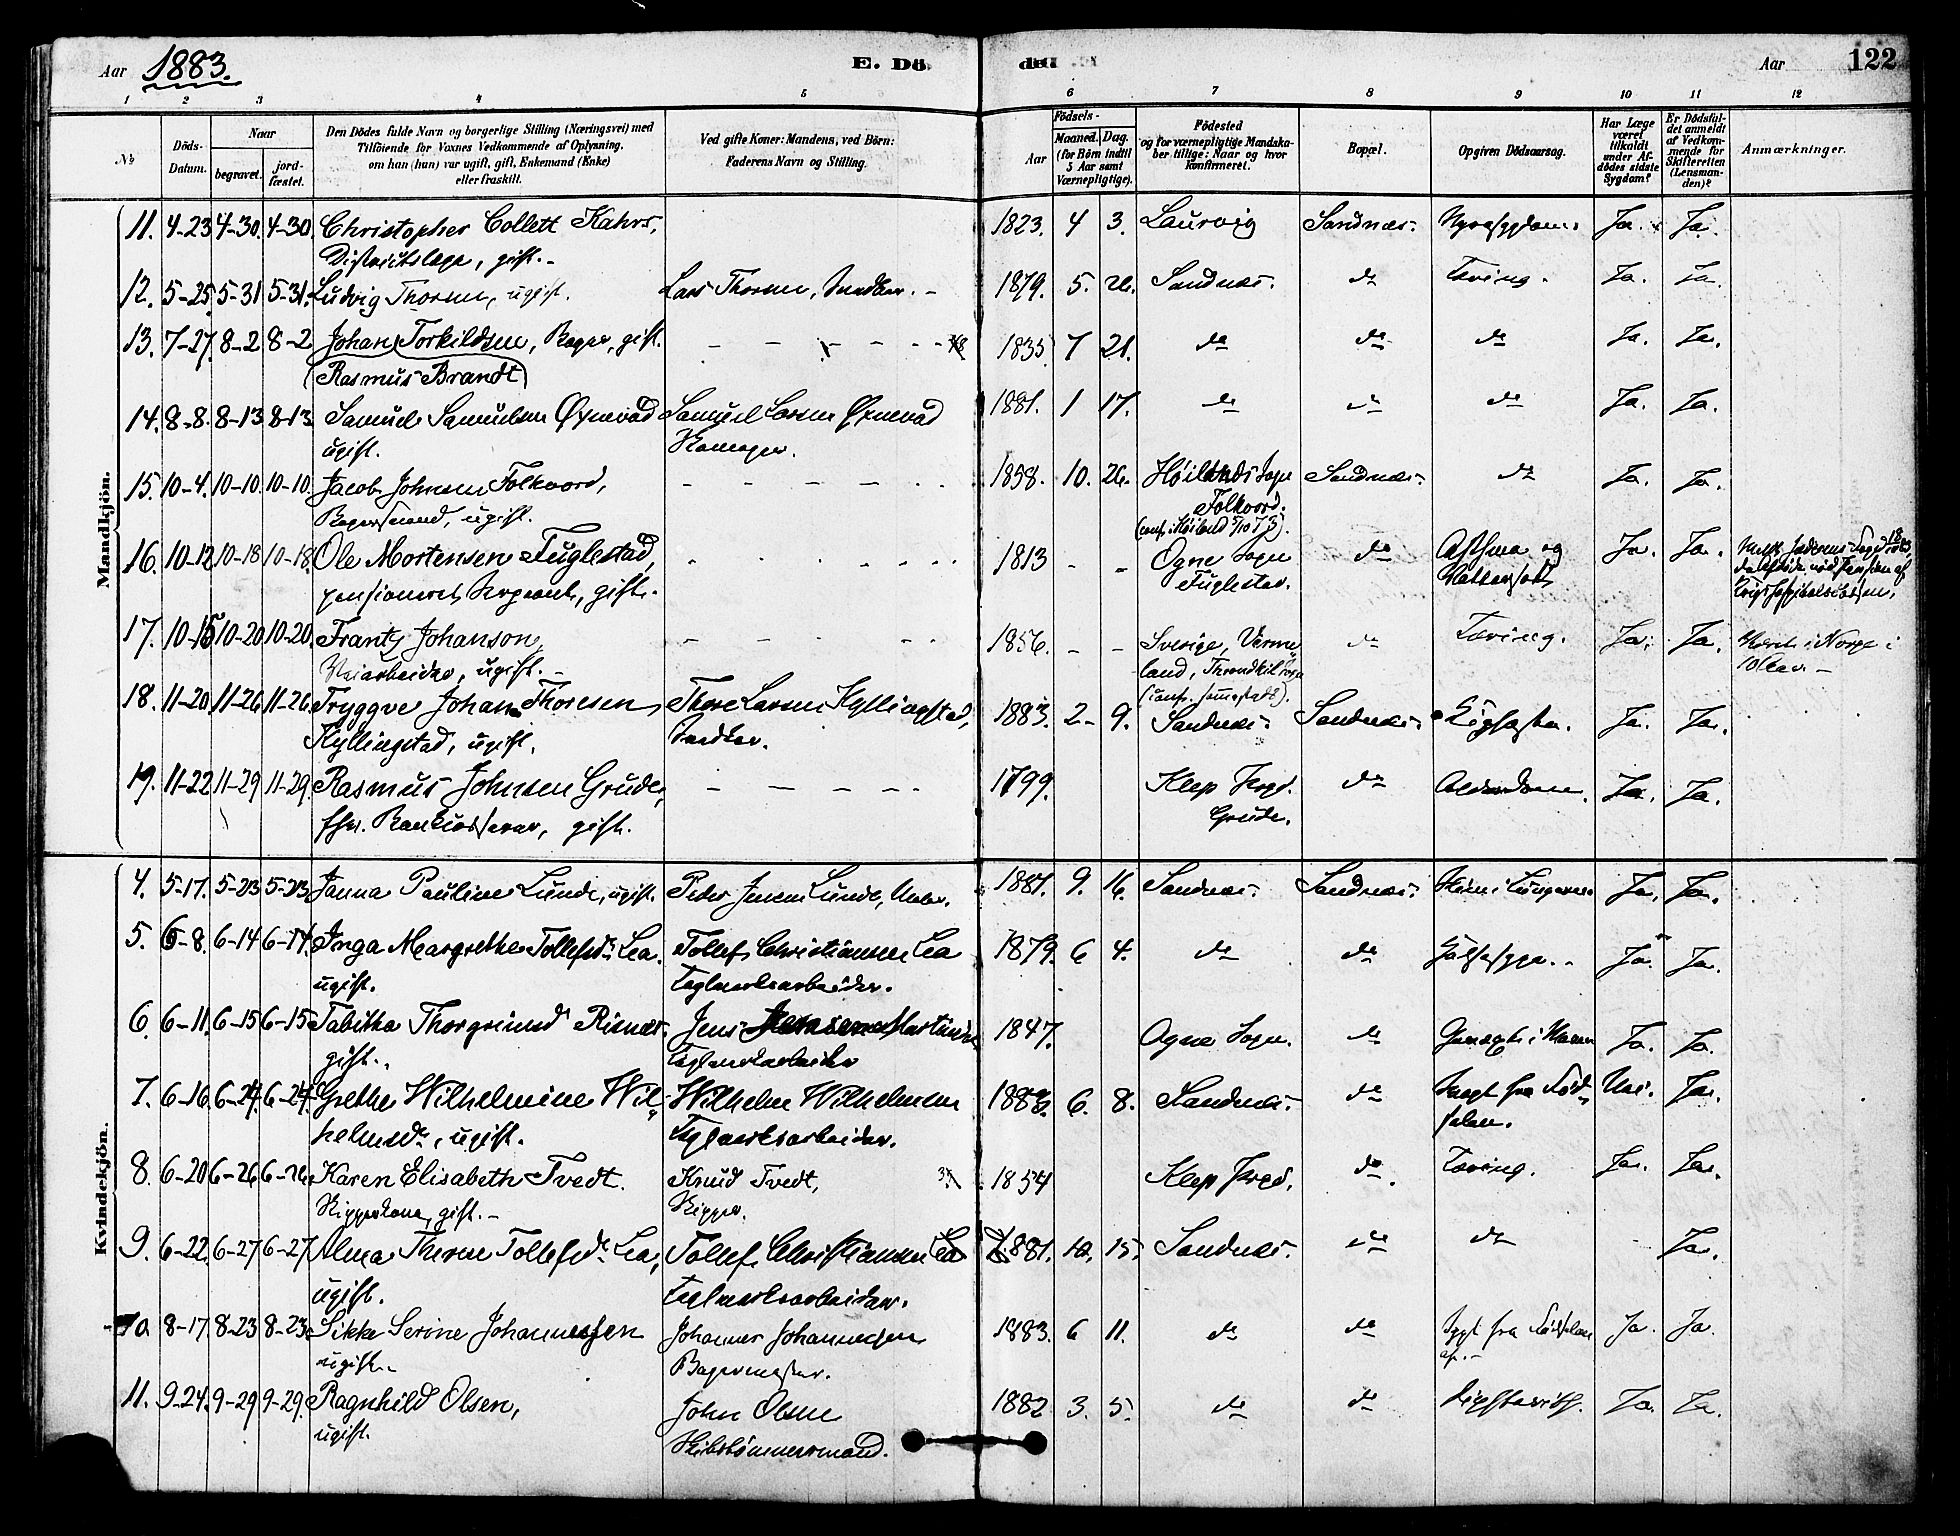 Aar 1883.
E. Dö
de
Aar
122
1 2 3 4 5 6 7 8 9 10 11 12
№
Döds-
Datum.
Naar
begravet.
jord-
fæstet.
Den Dödes fulde Navn og borgerlige Stilling (Næringsvei) med
Tilföiende for Voxnes Vedkommende af Oplysning,
om han (hun) var ugift, gift, Enkemand (Enke)
eller fraskilt.
Ved gifte Koner: Mandens, ved Börn:
Faderens Navn og Stilling.
Födsels-
Aar
Maaned.
Dag.
(for Börn indtil
5 Aar samt
Værnepligtige).
Födested
og for værnepligtige Mandska-
ber tillige: Naar og hvor
konfirmeret.
Bopæl.
Opgiven Dödsaarsag.
Har Læge
været
tilkaldt
under Af-
dödes sidste
Sygdom?
Er Dödsfal-
det anmeldt
af Vedkom-
mende for
Skifteretten
(Lensman-
den)?
Anmærkninger.
Mandkjön.
11. 4-23 4-30. 4-30. Christopher Collett Kahrs, 1823. 4 3. Laurvig Sandnæs. Ja. Ja.
Distriktslæge, gift.
12. 5-25. 5-31. 5-31. Ludvig Thorsen, ugift. Lars Thorsen, 1879. 5. 26. Sandnæs. do Tæring. Ja. Ja.
13. 7-27. 8-2. 8-2 Johan Torkildsen, Bager, gift. 1835 7 21. do do do Ja. Ja.
(Rasmus Brandt)
14. 8-8. 8-13 8-13. Samuel Samuelsen Øxnevad Samuel Larsen Øxnevad 1881. 1 17. do do do Ja. Ja.
ugift.
15. 10-4. 10-10. 10-10. Jacob Johnsen Folkvord, 1858. 10. 26. Höilands Sogn Sandnæs. do Ja. Ja.
Bagersvend, ugift. Folkvord.
16. 10-12 10-18 10-18. Ole Mortensen Fuglestad, 1813 - - Ogne Sogn do Asthma og Ja. Ja.
pensioneret Sergeant, gift. Fuglestad. Vattersot
17. 10-15 10-20 10-20. Frantz Johanson, 1856. - - Sverige, Verme- do Tæring. Ja. Ja. Været i Norge i
Veiarbeider, ugift. land,
18. 11-20. 11-26 11-26 Tryggve Johan Thoresen Thore Larsen Kyllingstad, 1883. 2- 9. Sandnæs. Sandnæs. Ja. Ja.
Kyllingstad, ugift.
19. 11-22. 11-29 11-29. Rasmus Johnsen Grude, 1799. Klep Prgd. do Alderdom. Ja. Ja.
fhv. Bankkasserer, gift. Grude.
Kvindekjön.
4. 5-17. 5-23 5-23 Janna Pauline Lunde, ugift. Peder Jensen Lunde, 1881. 9. 16. Sandnæs. Sandnæs. Ja. Ja.
5. 6-8. 6-14 6-14. Inga Margrethe Tollefsd. Lea. Tollef Christiansen Lea 1879. 6 4. do do Ja. Ja.
ugift. Teglværksarbeider.
6. 6-11. 6-15 6-15 Tabitha Thorgrimsd. Risnæs. Jens 1847. Ogne Sogn. do Ja. Ja.
gift. Teglværksarbeider
7. 6-16. 6-24. 6-24. Grethe Wilhelmine Wil- Wilhelm Wilhelmsen 1883. 6. 8. Sandnæs. do Svagt fra Föd- Nei. Ja.
helmsd., ugift. Teglværksarbeider. selen.
8. 6-20 6-26 6-26. Karen Elisabeth Tvedt. Knud Tvedt, 1854 Klep Prgd. do. Tæring. Ja. Ja.
Skipperkone, gift. Skipper.
9. 6-22. 6-27 6-27 Alma Therese Tollefsd. Lea, Tollef Christiansen Lea 1881. 10. 15. Sandnæs. do do - Ja.
ugift. Teglværksarbeider.
10. 8-17. 8-23 8-23. Sikke Serine Johannessen Johannes Johannessen 1883. 6 11. do do Sygt fra Födselen Ja. Ja.
ugift. Bagermester. af.
11. 9-24. 9-29 9-29. Ragnhild Olsen, John Olsen 1882 3. 5. do do Ja. Ja.
ugift. Skibstömmermand.